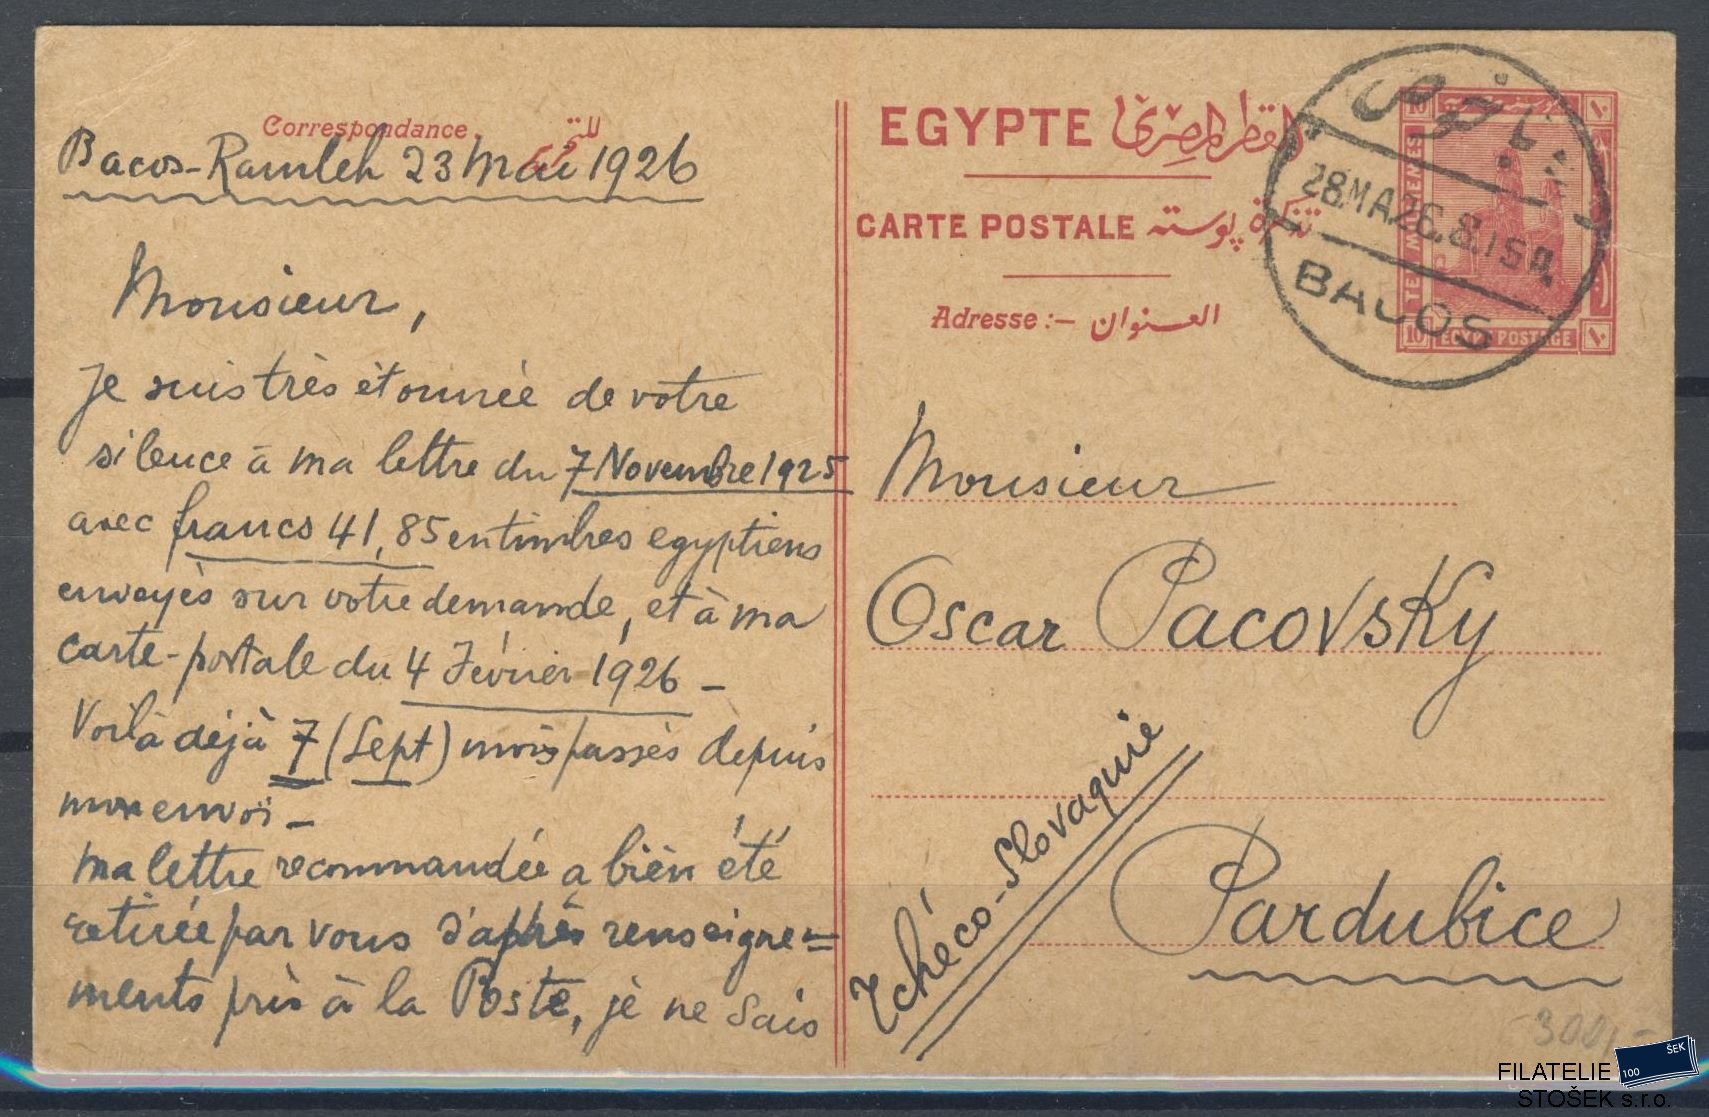 Correspondance. للتحرير
Bacos-Ramleh 23 Mai 1926
Monsieur,
Je suis très ètonnée de votre
silence à ma lettre du 7 Novembre 1925
avec francs 41,85 en timbres egyptiens
envoyès sur votre demande, et à ma
carte-postale du 4 Février 1926 –
Voilà déjà 7 (Sept) mois passès depuis
mon envoi –
Ma lettre recommandée a bièn été
retirée par vous d'après renseigne=
ments pris à la Poste, jè ne sais
EGYPTE القطر المصرى
CARTE POSTALE تذكرة پوسته
Adresse :– العنوان
باكوس
28.MA.26.8.15
BACOS
10 ١٠
TEN MILLIEMES
10 EGYPT POSTAGE ١٠
Monsieur
Oscar Pacovsky
Tchéco-Slovaquie
Pardubice
300,-
FILATELIE
STOŠEK s.r.o.
100 ŠEK